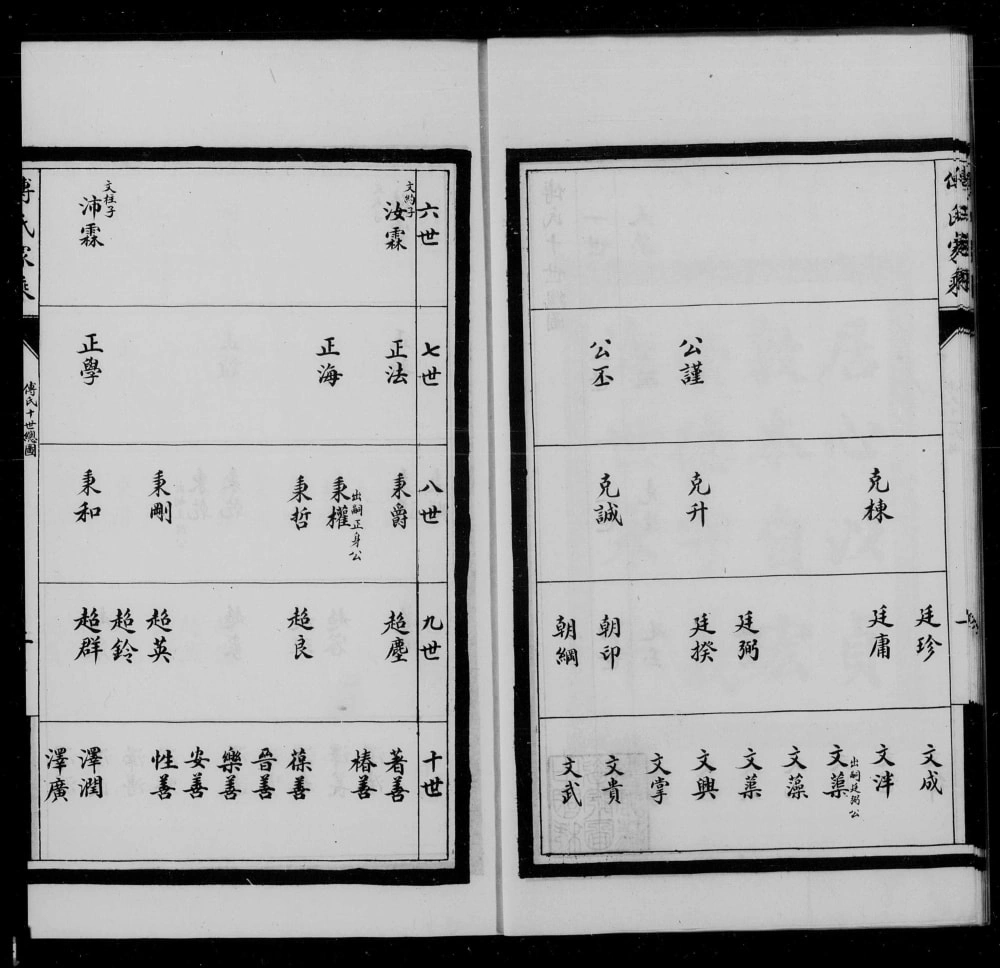 傅氏家乘
公謹
公丕
克棟
克升
克誠
廷珍
廷庸
廷弼
廷揆
朝印
朝綱
文成
文泮
文蕖
出嗣廷弼公
文藻
文蕖
文興
文掌
文貴
文武
六世
文約子
汝霖
文柱子
沛霖
七世
正法
正海
正學
八世
秉爵
出嗣正身公
秉權
秉哲
秉剛
秉和
九世
超塵
超良
超英
超鈴
超群
十世
著善
椿善
葆善
晉善
樂善
安善
性善
澤潤
澤廣
傅氏家乘
傅氏十世總圖